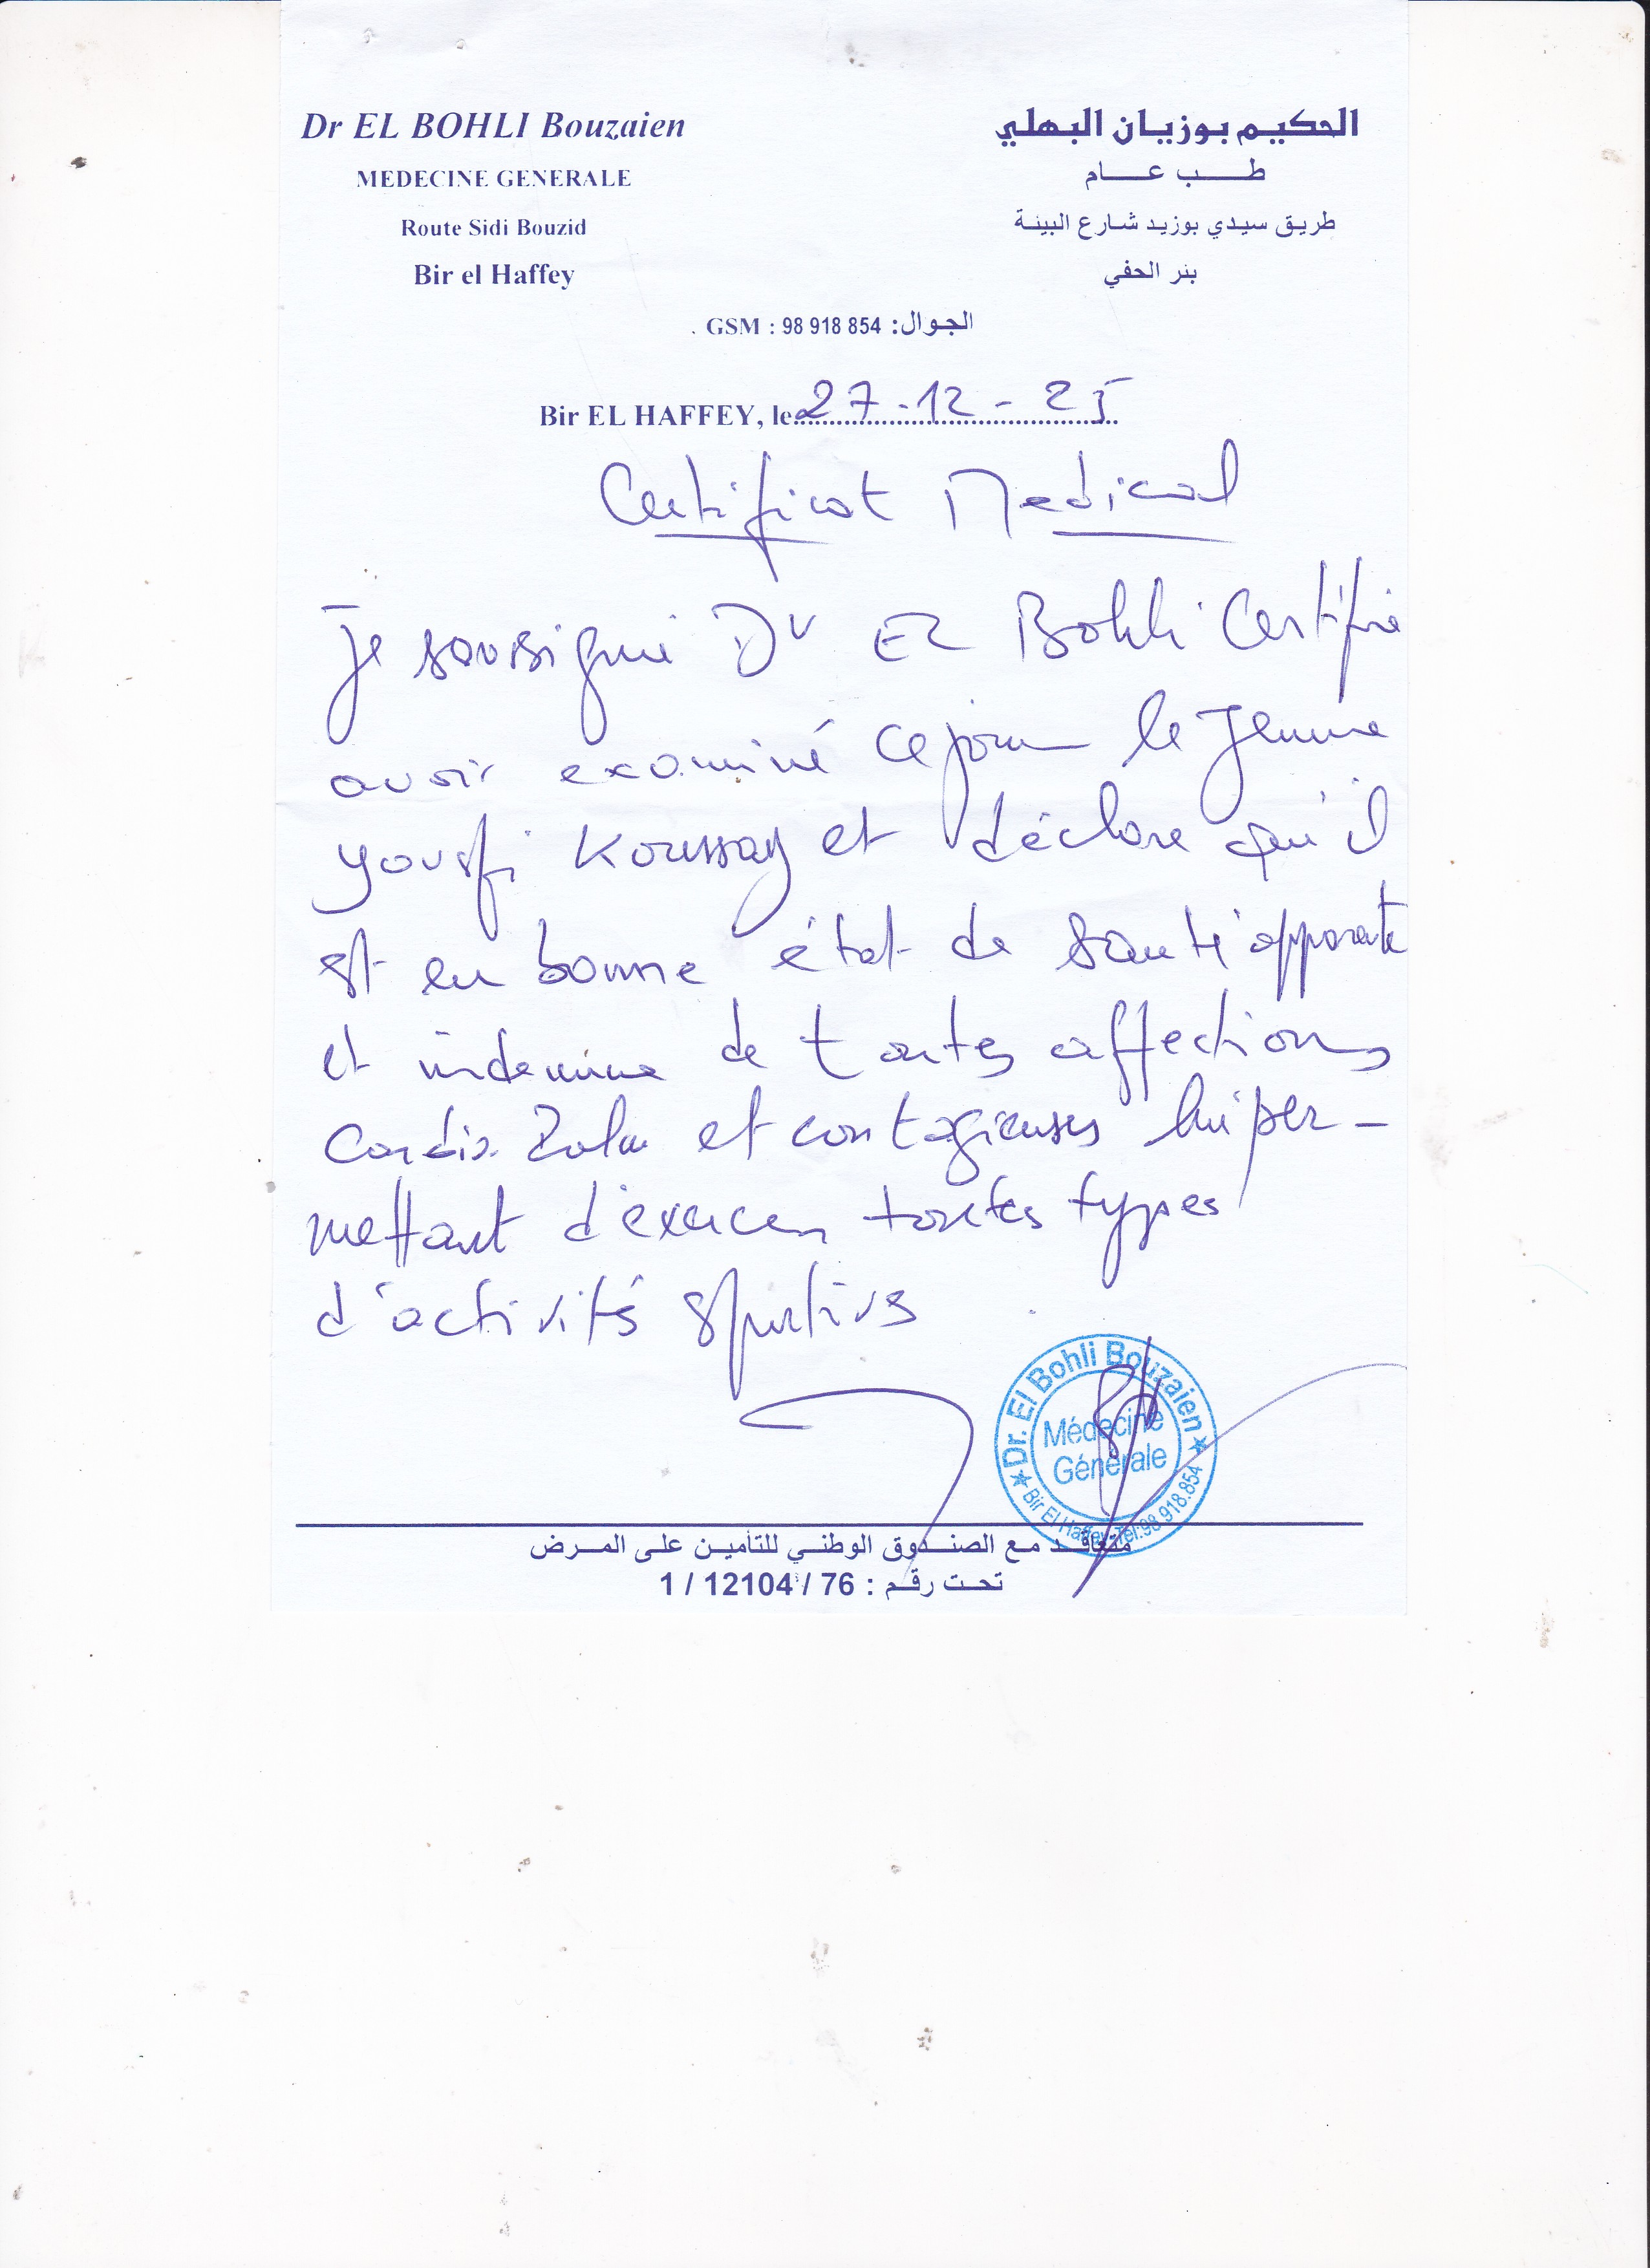 Dr EL BOHLI Bouzaien
MEDECINE GENERALE
Route Sidi Bouzid
Bir el Haffey
الحكيم بوزيان البهلي
طب عام
طريق سيدي بوزيد شارع البيئة
بئر الحفي
. GSM : 98 918 854 :الجوال
Bir EL HAFFEY, le 27-12-25
Certificat Medical
Je soussigné Dr EL Bohli Certifie
avoir examiné ce jour le Jeune
Yousfi Koussay et déclare qu'il
est en bonne état de santé apparente
et indemne de toutes affections
et contagieuses lui per-
mettant d'exercer toutes types
d'activités sportives
Dr. El Bohli Bouzaien
Médecine
Générale
Bir El Haffey Tel:98 918.854
متعاقد مع الصندوق الوطني للتأمين على المرض
تحت رقم : 76 / 12104 / 1